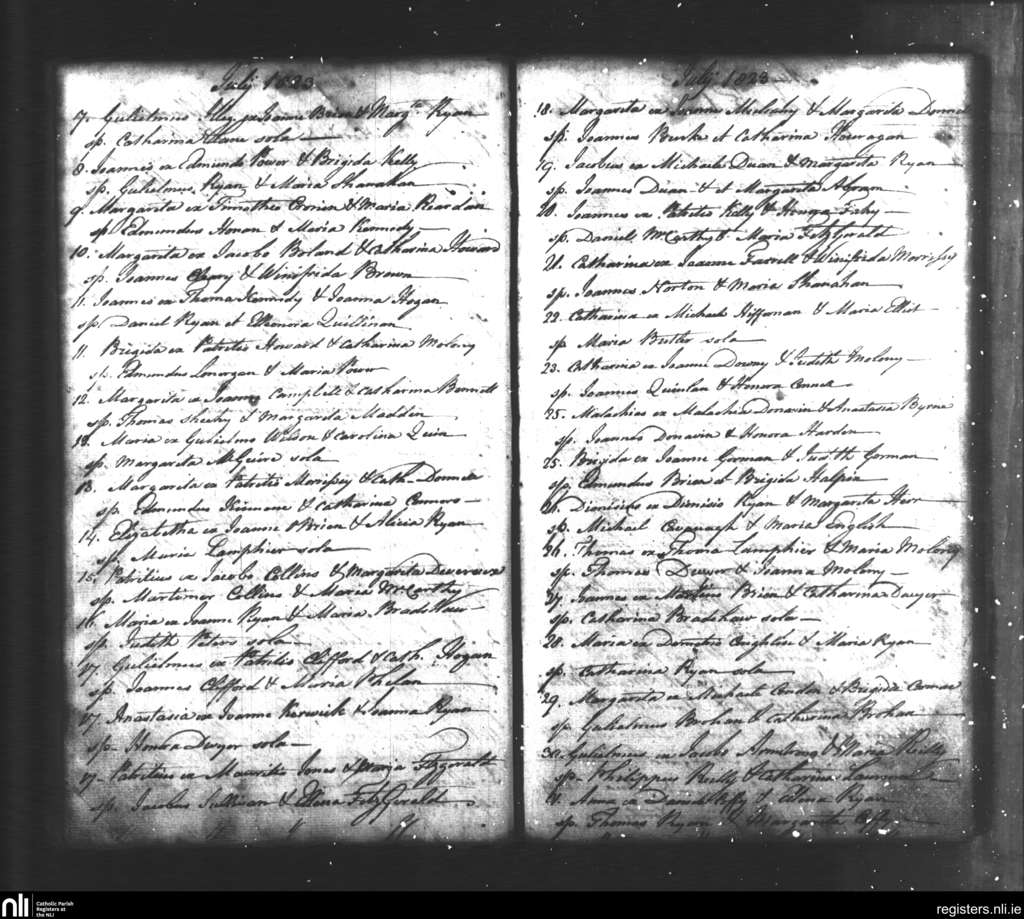 July 1823
7. Gulielmus ex Joanne Brien & Margta Ryan
sp. Catharina sola
8. Joannes ex Edmundo Power & Brigida Kelly
sp. Gulielmus Ryan & Maria Shanahan
9. Margarita ex Timotheo Cronin & Maria Reardan
sp Edmundus Honan & Maria Kennedy
10. Margarita ex Jacobo Boland & Catharina Howard
sp. Joannes Cleary & Winifrida Brown
11. Joannes ex Thoma Kennedy & Joanna Hogan
sp. Daniel Ryan et Elleonora Quillinan
11. Brigida ex Patritio Howard & Catharina Molony
sp. Edmundus Lonorgan & Maria Power
12. Margarita ex Joanne Campbell & Catharina Bennett
sp. Thomas Sheehy & Margarita Madden
13. Maria ex Gulielmo Wilson & Carolina Quin
sp. Margarita McGuire sola
13. Margarita ex Patritio Morrissey & Cath
sp. Edmundus & Catharina Connors
14. Elizabetha ex Joanne OBrien & Alicia Ryan
sp. Maria Lamphier sola
15. Patritius ex Jacobo Collins & Margarita Devereux
sp. Martimer Collins & Maria McCarthy
16. Maria ex Joanne Ryan & Maria Bradshaw
sp. Judith Peters sola
17. Gulielmus ex Patritio Clifford & Cath. Hogan
sp. Joannes Clifford & Maria Phelan
17. Anastasia ex Joanne Kerwick & Joanna Ryan
sp. Honora Dwyer sola
17. Patritius ex Mauritio Jones & Fitzgerald
sp. Jacobus Sullivan & Ellena FitzGerald
July 1823
18. Margarita ex Joanne & Margarita
sp. Joannes Burke et Catharina Howragan
19. Jacobus ex Michaele Duan & Margarita Ryan
sp. Joannes Duan & et Margarita
20. Joannes ex Patritio Kelly & Honora Fahy
sp. Daniel McCarthy & Maria FitzGerald
21. Catharina ex Joanne Farrell & Winifrida Morrissey
sp. Joannes Norton & Maria Shanahan
22. Catharina ex Michaele Hiffernan & Maria Elliot
sp Maria Butler sola
23. Catharina ex Joanne Downy & Judith Molony
sp. Joannes Quinlan & Honora
25. Malachias ex Malachia Donavin & Anastasia Byrne
sp. Joannes Donavin & Honora Harden
25. Brigida ex Joanne Gorman & Judith Gorman
sp. Edmundus Brien et Brigida Halpin
26. Dionisius ex Dionisio Ryan & Margarita
sp. Michael Cavanagh & Maria English
26. Thomas ex Thoma Lamphier & Maria Molony
sp. Thomas & Joanna Molony
27. Joannes ex Brien & Catharina Dwyer
sp. Catharina Bradshaw sola
28. Maria ex Coughlin & Maria Ryan
sp. Catharina Ryan sola
29. Margarita ex Michaele Condon & Brigida Connor
sp. Gulielmus Brohan & Catharina Brohan
30. Gulielmus ex Jacobo Armstrong & Maria Reilly
sp. Philippus Reilly & Catharina
Anna ex & Ellena Ryan
sp. Thomas Ryan & Margarita
nli
Catholic Parish
Registers at
the NLI
registers.nli.ie